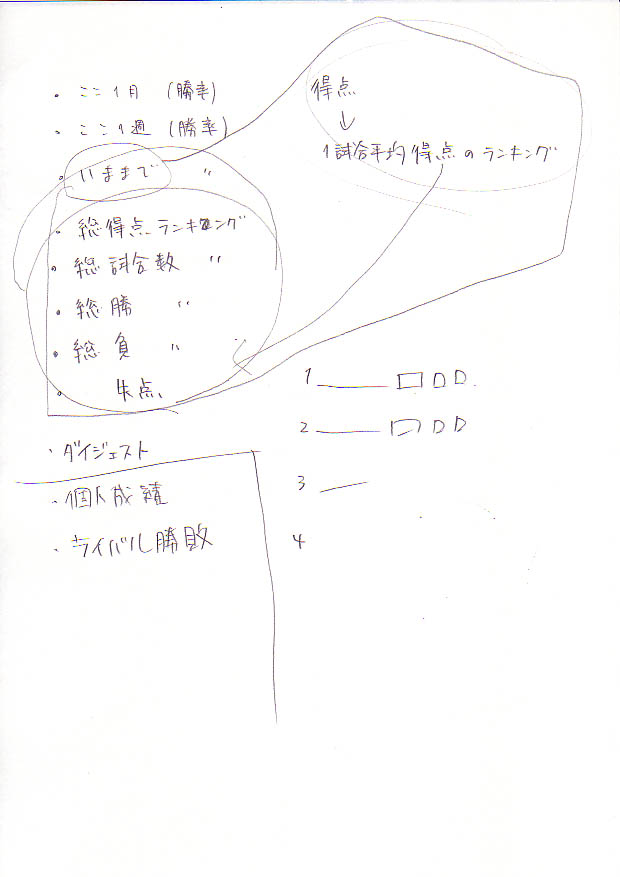 ・ここ1月 (勝率)
・ここ1週 (勝率)
・いままで 〃
・総得点ランキング
・総試合数 〃
・総勝 〃
・総負 〃
・失点
・ダイジェスト
・個人成績
・ライバル勝敗
得点
↓
1試合平均得点のランキング
1
2
3
4